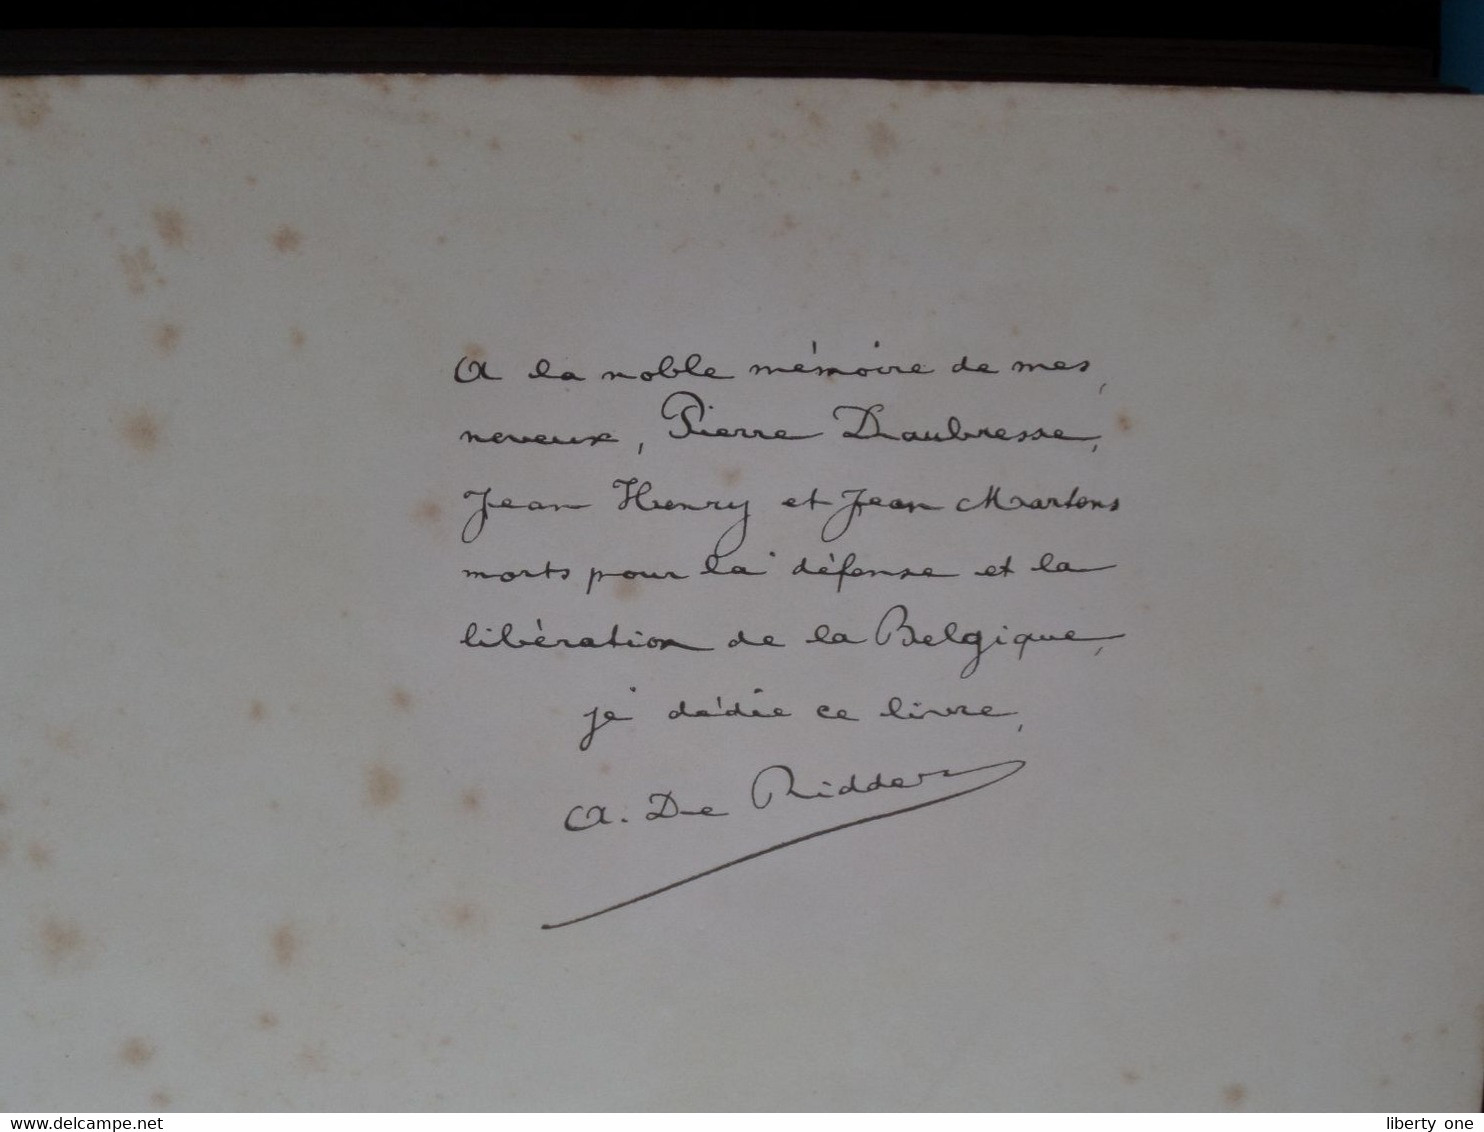 A la noble mémoire de mes
neveux, Pierre Daubresse,
Jean Henry et Jean Martens
morts pour la défense et la
libération de la Belgique,
je dédie ce livre,
A. De Ridder
www.delcampe.net
liberty one